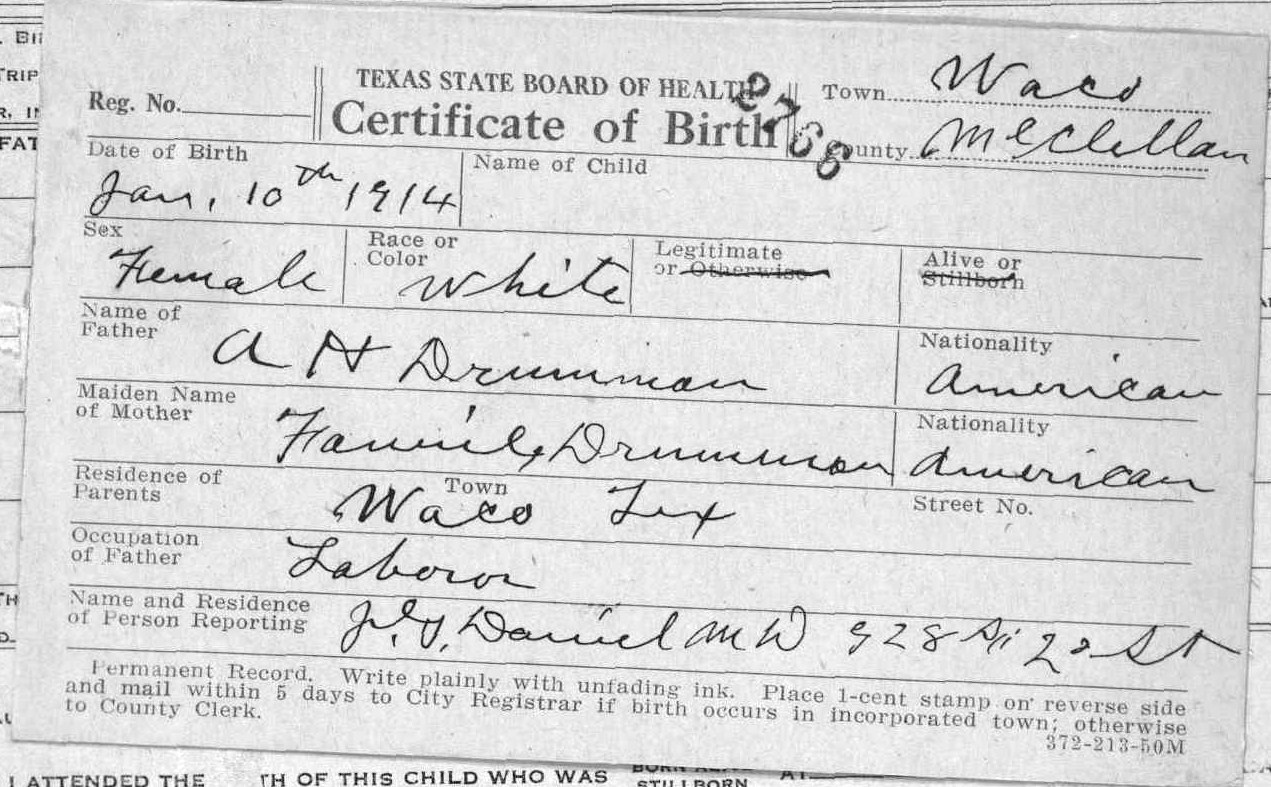 . BI
TRIP
R, I
FAT
TEXAS STATE BOARD OF HEALTH
Certificate of Birth
Reg. No.
2768
Town Waco
ounty McClellan
Date of Birth
Jan, 10th 1914
Name of Child
Sex
Female
Race or
Color
White
Legitimate
or Otherwise
Alive or
Stillborn
Name of
Father
A H Drumman
Nationality
American
Maiden Name
of Mother
Fannie Drummon
Nationality
American
Residence of
Parents
Town
Waco Tex
Street No.
Occupation
of Father
Laboror
Name and Residence
of Person Reporting
Daniel M D 928 St
Permanent Record. Write plainly with unfading ink. Place 1-cent stamp on reverse side
and mail within 5 days to City Registrar if birth occurs in incorporated town; otherwise
to County Clerk.
372-213-50M
I ATTENDED THE TH OF THIS CHILD WHO WAS
STILLBORN